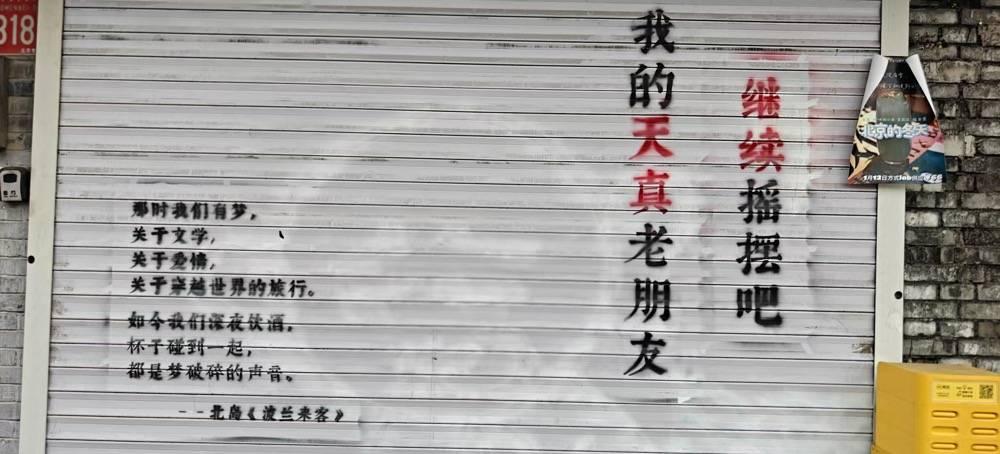 318
继续摇摆吧
我的天真老朋友
那时我们有梦，
关于文学，
关于爱情，
关于穿越世界的旅行。
如今我们深夜饮酒，
杯子碰到一起，
都是梦破碎的声音。
--北岛《波兰来客》
北京的冬天